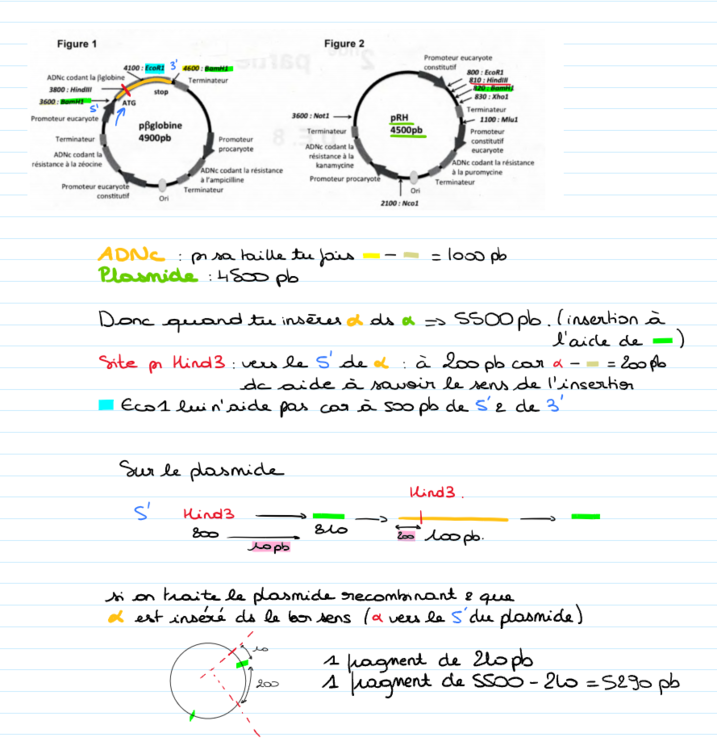 Figure 1
Figure 2
4100 : EcoR1 3' 4600 : BamH1
ADNc codant la βglobine
Terminateur
3800 : HindIII
stop
3600 : BamH1
5'
ATG
Promoteur eucaryote
pβglobine
4900pb
Terminateur
Promoteur procaryote
ADNc codant la résistance à la zéocine
ADNc codant la résistance à l'ampicilline
Promoteur eucaryote constitutif
Terminateur
Ori
Promoteur eucaryote constitutif
800 : EcoR1
810 : HindIII
820 : BamH1
830 : Xho1
Terminateur
1100 : Mlu1
3600 : Not1
pRH
4500pb
Terminateur
Promoteur constitutif eucaryote
ADNc codant la résistance à la kanamycine
ADNc codant la résistance à la puromycine
Promoteur procaryote
Terminateur
Ori
2100 : Nco1
ADNc : pr sa taille tu fais - = 1000 pb
Plasmide : 4500 pb
Donc quand tu insères α ds α ⇒ 5500 pb. (insertion à
l'aide de )
Site pr Hind3 : vers le 5' de α : à 200 pb car α - = 200 pb
dc aide à savoir le sens de l'insertion
Eco1 lui n'aide pas car à 500 pb de 5' & de 3'
Sur le plasmide
Hind3.
5' Hind3
800 810
10 pb
200 100 pb.
si on traite le plasmide recombinant & que
α est inséré ds le bon sens (α vers le 5' du plasmide)
10
200
1 fragment de 210 pb
1 fragment de 5500 - 210 = 5290 pb